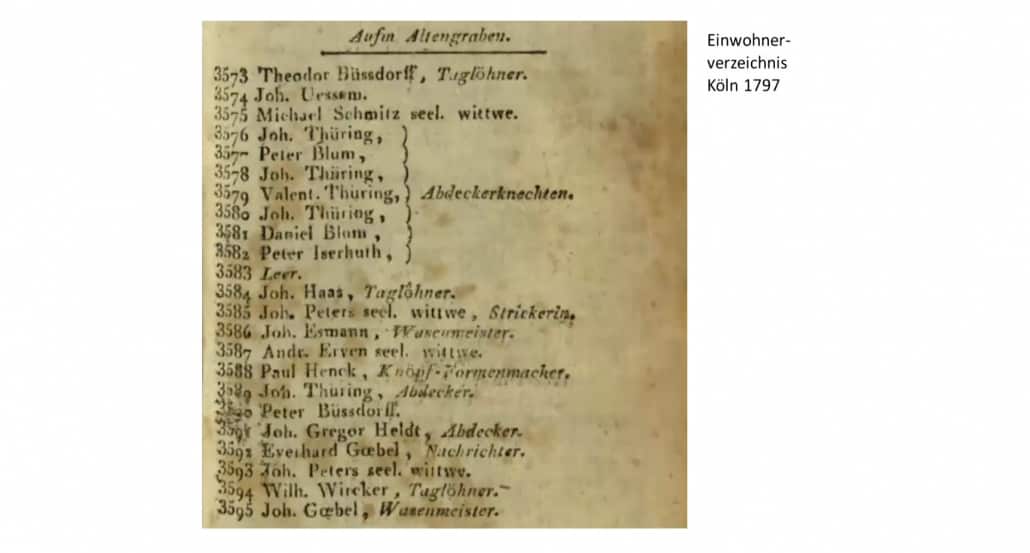 Aufm Altengraben.
3573 Theodor Büssdorff, Taglöhner.
3574 Joh. Uessem.
3575 Michael Schmitz seel. wittwe.
3576 Joh. Thüring,
3577 Peter Blum,
3578 Joh. Thüring,
3579 Valent. Thüring, } Abdeckerknechten.
3580 Joh. Thüring,
3581 Daniel Blum,
3582 Peter Iserhuth,
3583 Leer.
3584 Joh. Haas, Taglöhner.
3585 Joh. Peters seel. wittwe, Strickerin.
3586 Joh. Esmann, Wasenmeister.
3587 Andr. Erven seel. wittwe.
3588 Paul Henck, Knöpf-Formenmacker.
3589 Joh. Thüring, Abdecker.
3590 Peter Büssdorff.
3591 Joh. Gregor Heldt, Abdecker.
3592 Everhard Gœbel, Nachrichter.
3593 Joh. Peters seel. wittwe.
3594 Wilh. Wircker, Taglöhner.
3595 Joh. Gœbel, Wasenmeister.
Einwohner-
verzeichnis
Köln 1797